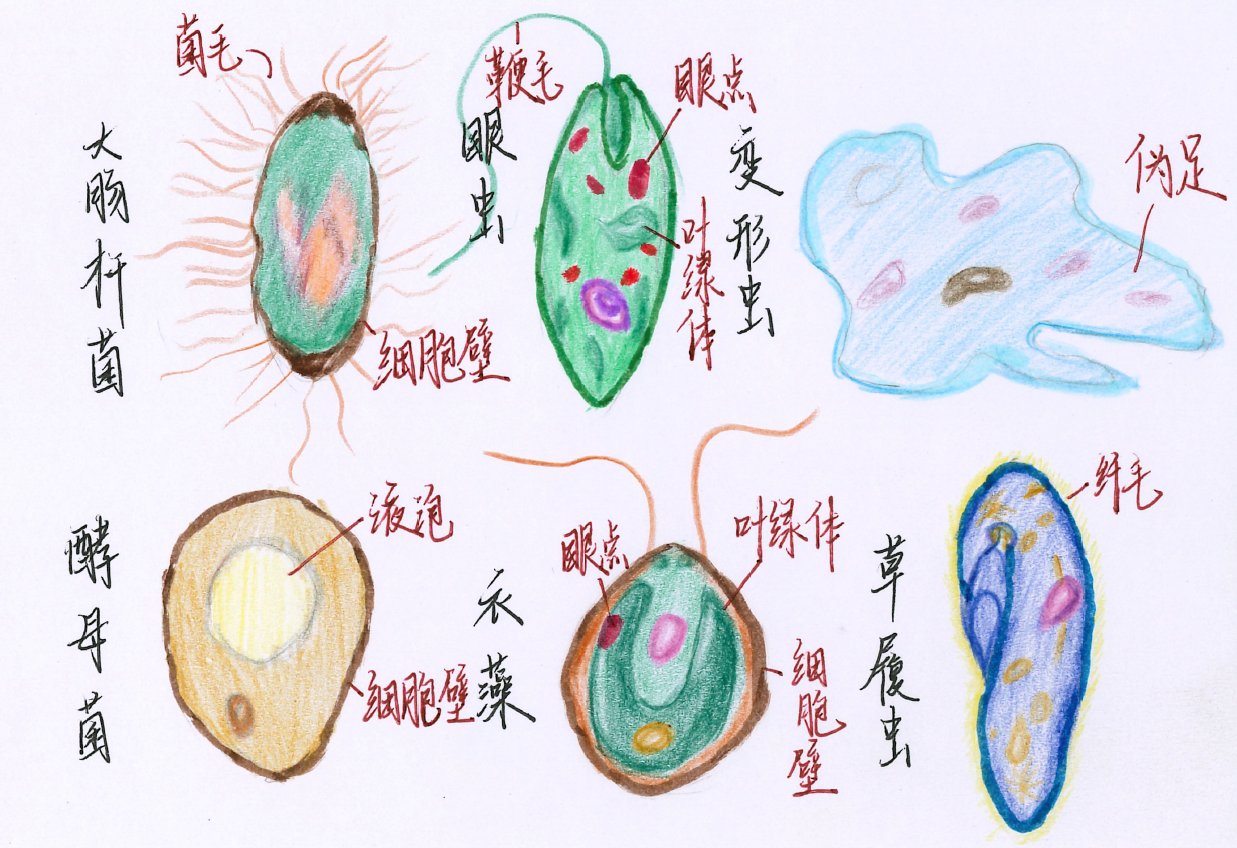 菌毛
大肠杆菌
细胞壁
鞭毛
眼虫
眼点
叶绿体
变形虫
伪足
酵母菌
液泡
细胞壁
衣藻
眼点
叶绿体
细胞壁
草履虫
纤毛